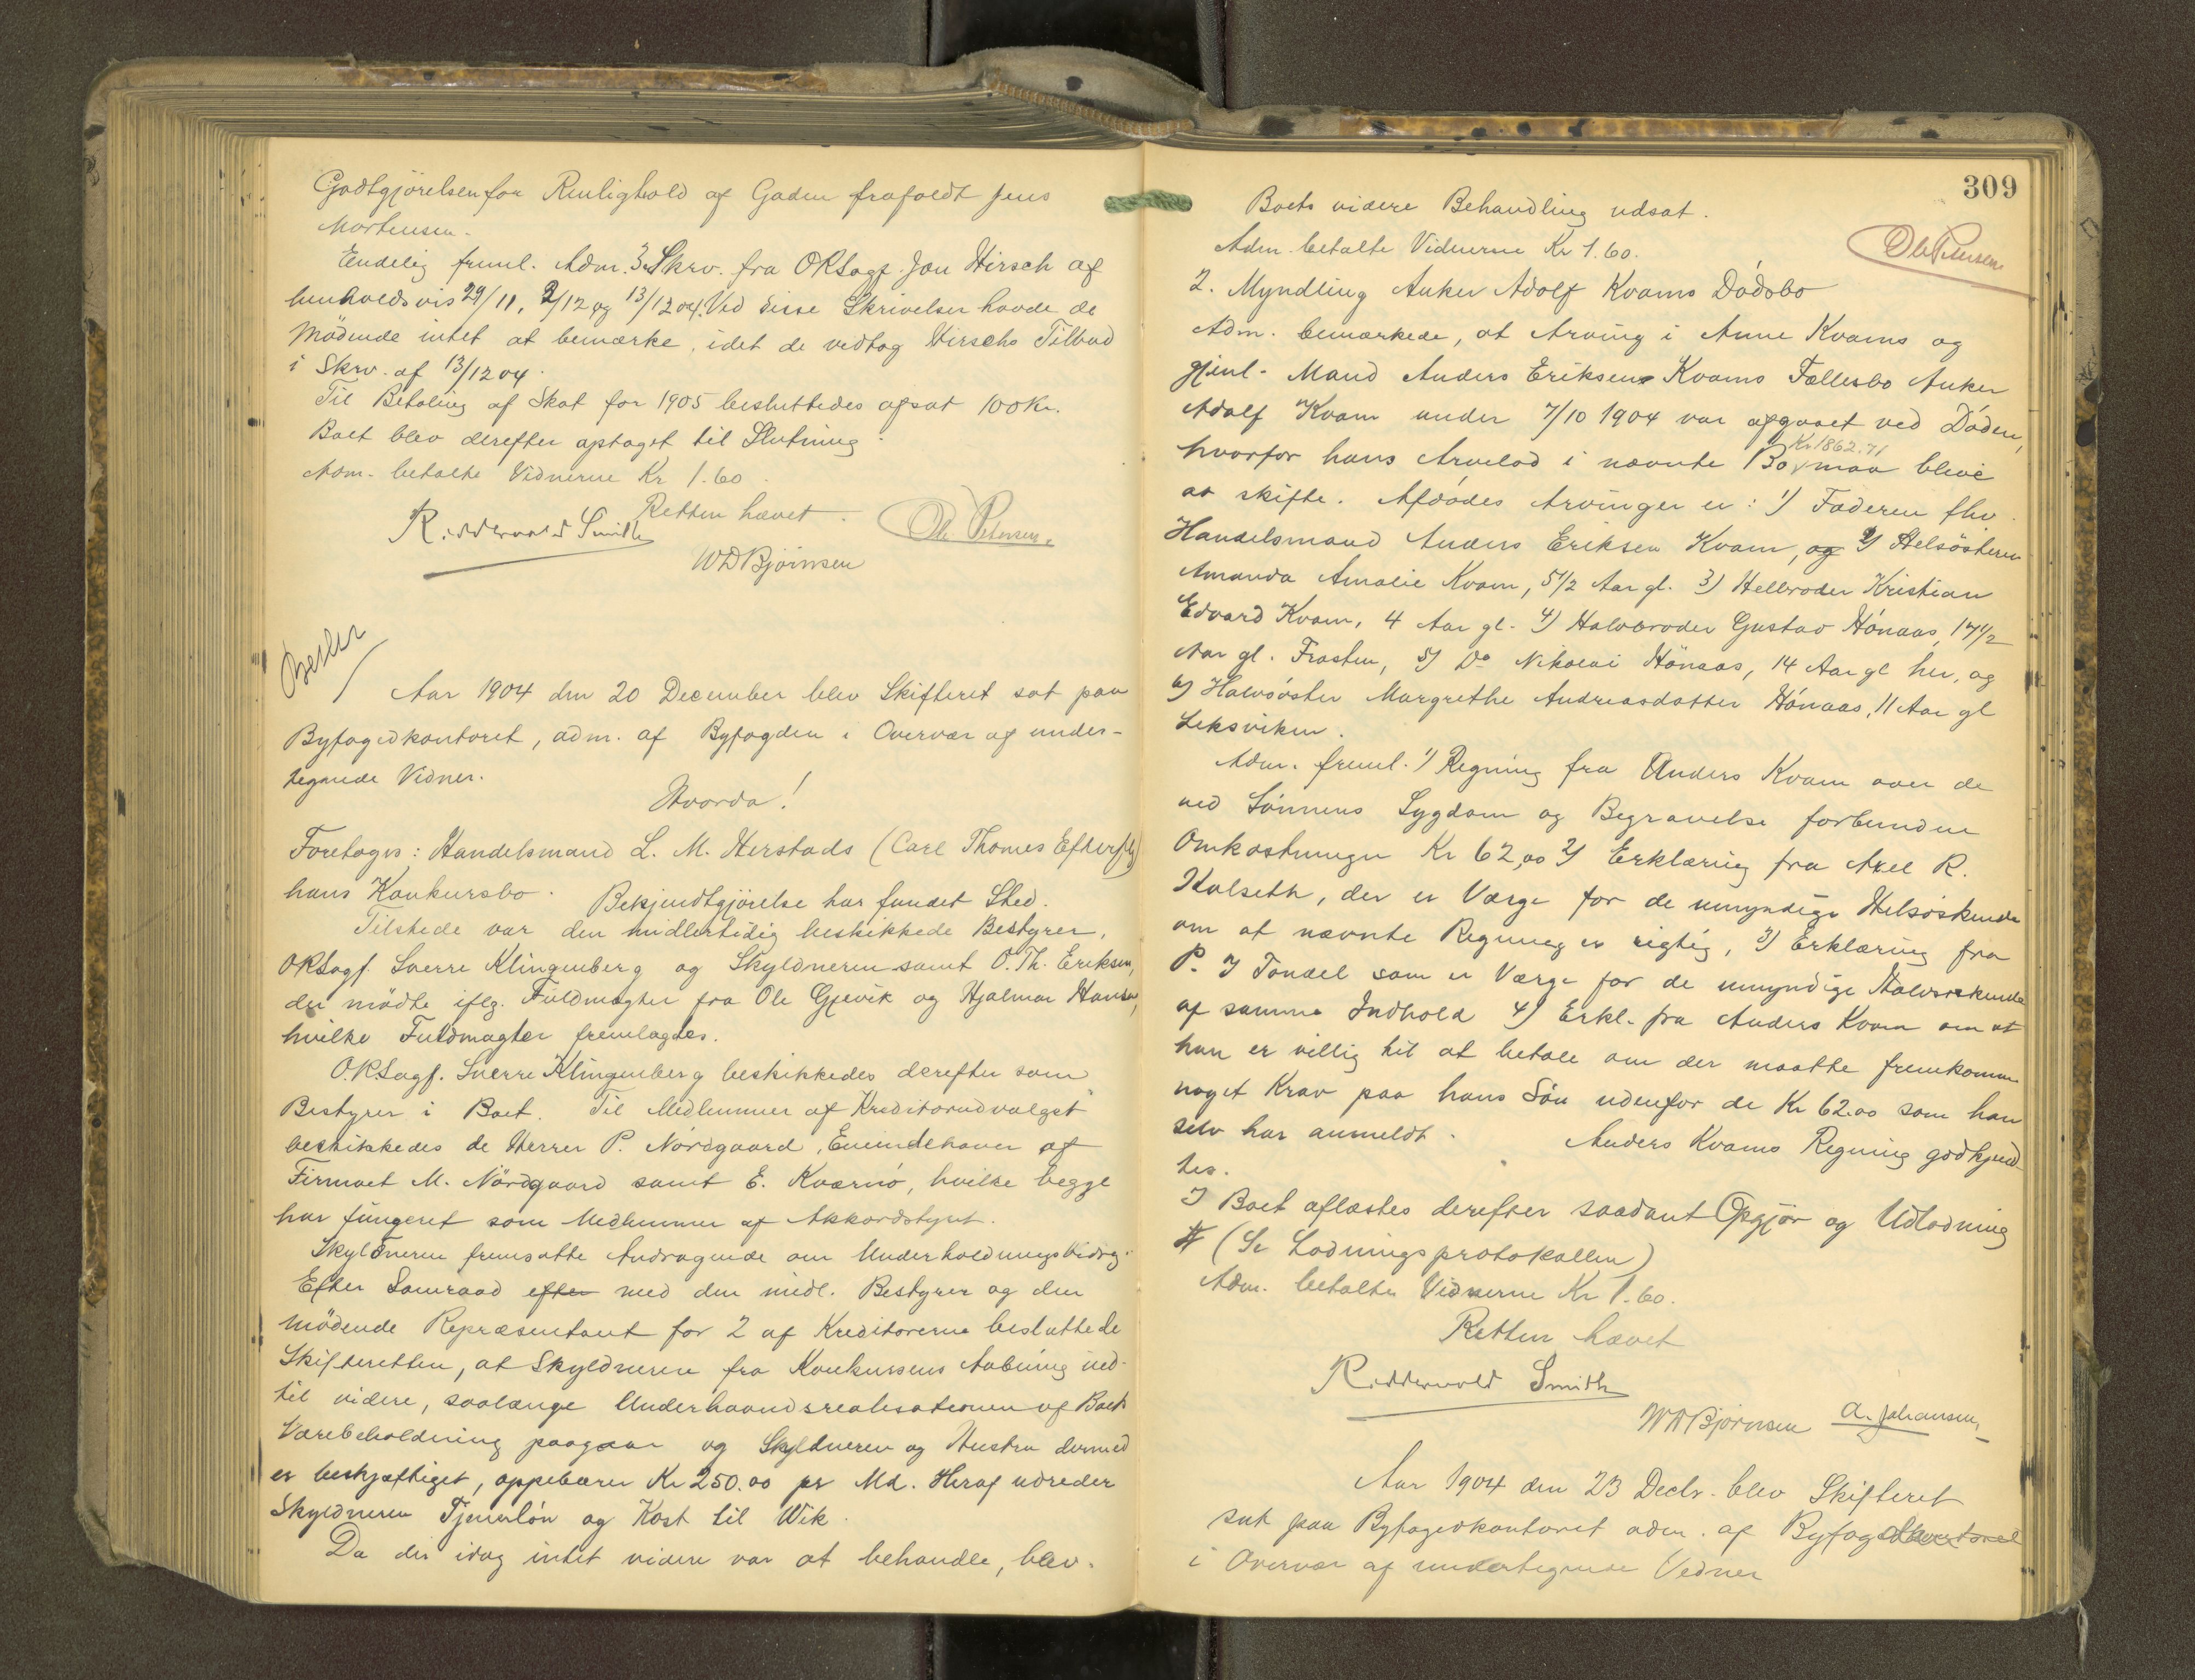 Godtgjörelsen for Renlighold af Gaden frafaldt Jens
Mortensen.
Endelig freml. Adm. 3 Skrv. fra ORSagf. Jon Hirsch af
henholdsvis 29/11, 2/12 og 13/12 04. Ved disse Skrivelser havde de
Mödende intet at bemærke, idet de vedtog Hirschs Tilbud
i Skrv. af 13/12 04.
Til Betaling af Skat for 1905 besluttedes afsat 100 Kr.
Boet blev derefter optaget til Slutning.
Adm. betalte Vidnerne Kr 1.60.
Retten hævet.
Ridderwold Smith
Ole Petersen.
WD Bjørnsen
Aar 1904 den 20 December blev Skifteret sat paa
Byfogedkontoret, adm. af Byfogden i Overvær af under-
tegnede Vidner.
Hvorda!
Foretoges: Handelsmand L. M. Herstads (Carl Thomes Efterflg)
hans Konkursbo. Bekjendtgjörelse har fundet Sted.
Tilstede var den midlertidig beskikkede Bestyrer,
ORSagf. Sverre Klingenberg og Skyldneren samt O. Th. Eriksen,
der mödte iflg. Fuldmagter fra Ole Gjevik og Hjalmar Hansen,
hvilke Fuldmagter fremlagdes.
O.R.Sagf. Sverre Klingenberg beskikkedes derefter som
Bestyrer i Boet. Til Medlemmer af Kreditorudvalget
beskikkedes de Herrer P. Nördgaard, Eneindehaver af
Firmaet M. Nördgaard samt E. Kværnö, hvilke begge
har fungeret som Medlemmer af Akkordstyret.
Skyldneren fremsatte Andragende om Underholdningsbidrag.
Efter Samraad efter med den midl. Bestyrer og den
mödende Repræsentant for 2 af Kreditorerne besluttede
Skifteretten, at Skyldneren fra Konkursens Aabning ind-
til videre, saalænge Underhaandsrealisationen af Boets
Varebeholdning paagaar og Skyldneren og Hustru dermed
er beskjæftiget, oppebærer Kr 250.00 pr Md. Heraf udreder
Skyldneren Tjenerlön og Kost til Wik.
Da der idag intet videre var at behandle, blev
309
Boets videre Behandling udsat.
Adm. betalte Vidnerne Kr 1.60.
Ole Petersen
2. Myndling Anker Adolf Kvams Dödsbo
Adm. bemærkede, at Arving i Anne Kvams og
gjenl. Mand Anders Eriksens Kvams Fællesbo Anker
Adolf Kvam under 7/10 1904 var afgaaet ved Döden,
Kr 1862.71
hvorfor hans Arvelod i nævnte Bo maa blive
at skifte. Afdödes Arvinger er: 1) Faderen fhv.
Handelsmand Anders Eriksen Kvam, og 2) Helsösteren
Amanda Amalie Kvam, 5 1/2 Aar gl. 3) Helbroder Kristian
Edvard Kvam, 4 Aar gl. 4) Halvbroder Gustav Hönaas, 17 1/2
Aar gl. Frosten, 5) Do Nikolai Hönaas, 14 Aar gl her, og
6) Halvsöster Margrethe Andreasdatter Hönaas, 11 Aar gl
Leksviken.
Adm. freml. 1) Regning fra Anders Kvam over de
ved Sönnens Sygdom og Begravelse forbundne
Omkostninger Kr 62,00 2) Erklæring fra Axel R.
Kalseth, der er Værge for de umyndige Helsöskende
om at nævnte Regning er rigtig, 3) Erklæring fra
P. J Tondel som er Værge for de umyndige Halvsöskende
af samme Indhold 4) Erkl. fra Anders Kvam om at
han er villig til at betale om der maatte fremkomme
noget Krav paa hans Sön udenfor de Kr 62.00 som han
selv har anmeldt. Anders Kvams Regning godkjend-
tes.
I Boet aflæstes derefter saadant Opgjör og Udlodning
# (Se Lodningsprotokollen)
Adm. betalte Vidnerne Kr 1.60.
Retten hævet
Ridderwold Smith
WD Bjørnsen A. Johansen
Aar 1904 den 23 Decbr. blev Skifteret
sat paa Byfogedkontoret adm. af Byfogd
i Overvær af undertegnede Vidner